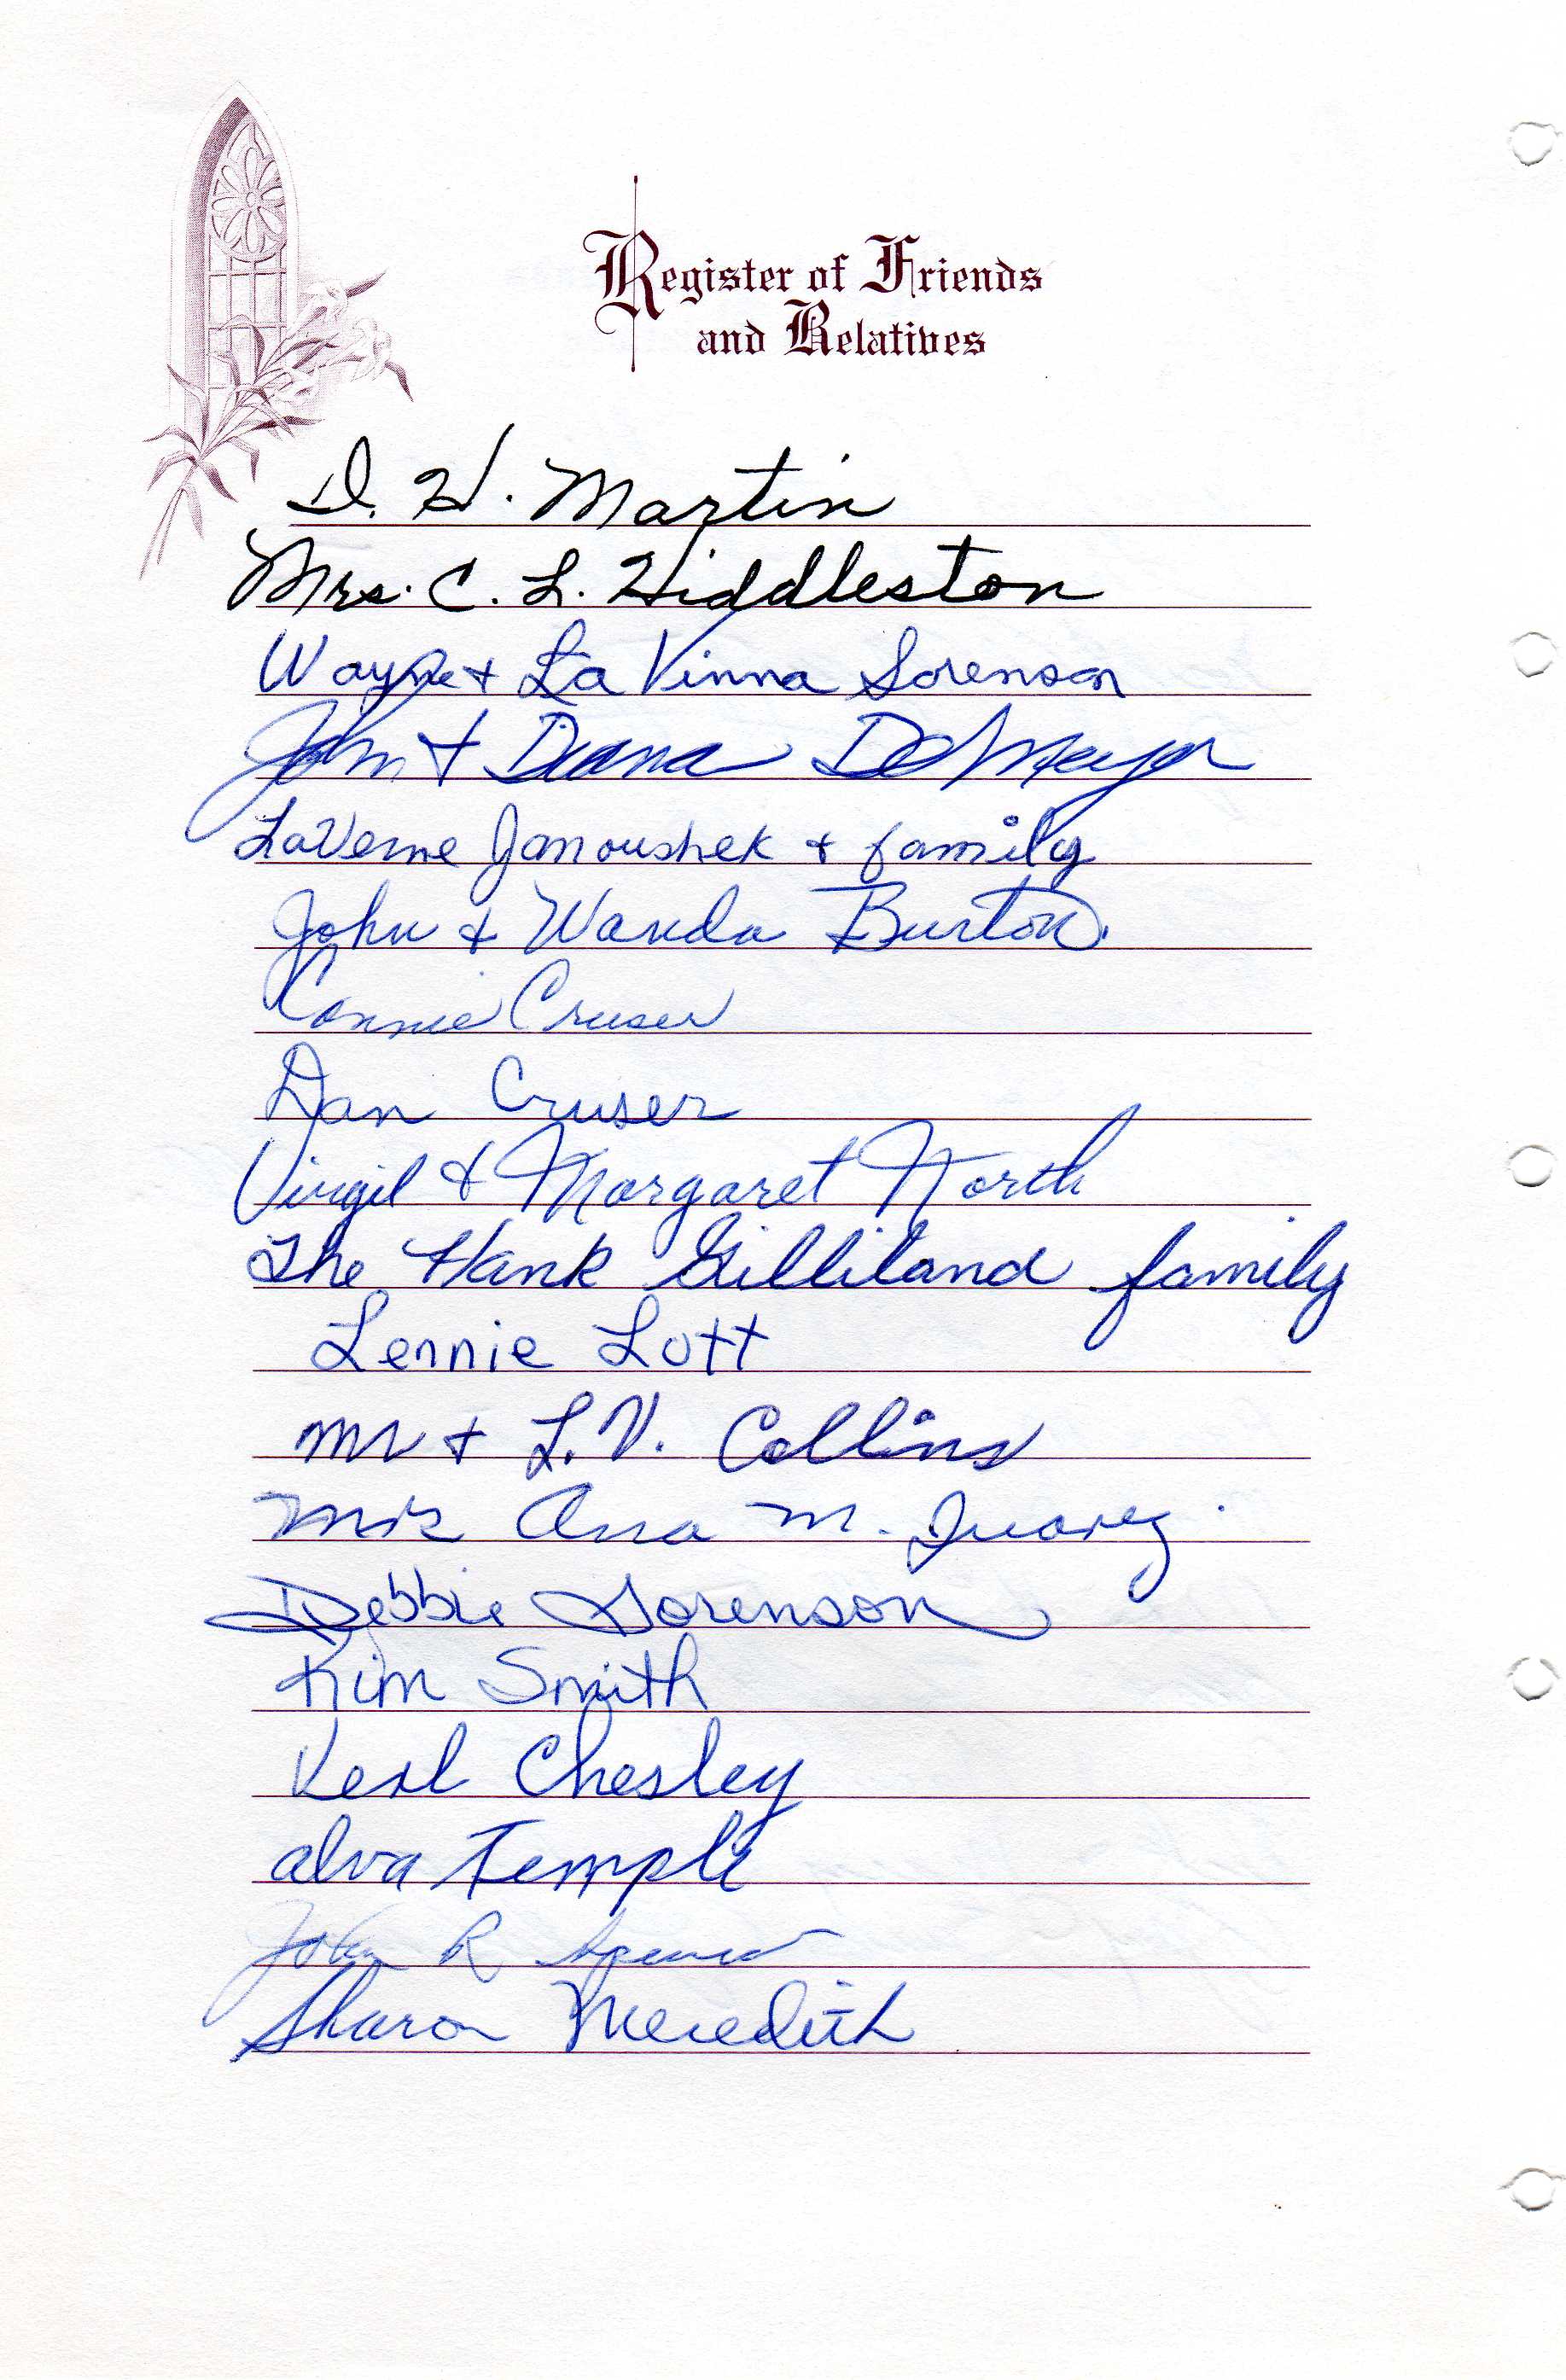 Register of Friends
and Relatives
D. H. Martin
Mrs. C. L. Hiddleston
Wayne + LaVinna Sorenson
John + Diana DeMeyer
LaVerne Janoushek + family
John & Wanda Burton.
Connie Cruser
Dan Cruser
Virgil & Margaret North
The Hank Gilliland family
Lennie Lott
Mr + L.V. Collins
Mrs Ana M. Juarez
Debbie Sorenson
Kim Smith
Verl Chesley
Alva Temple
John R
Sharon Meredith